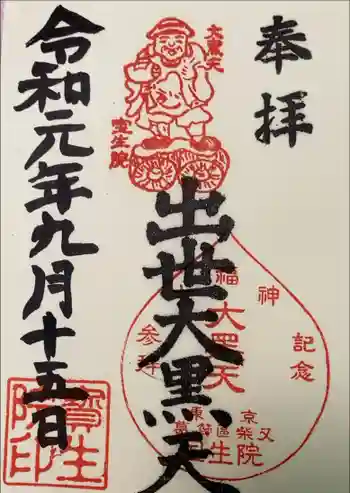 奉拝
大黒天
宝生院
出世大黒天
福神
記念
参拝
大黒天
東京
葛飾区柴又
宝生院
令和元年九月十五日
寳生院印